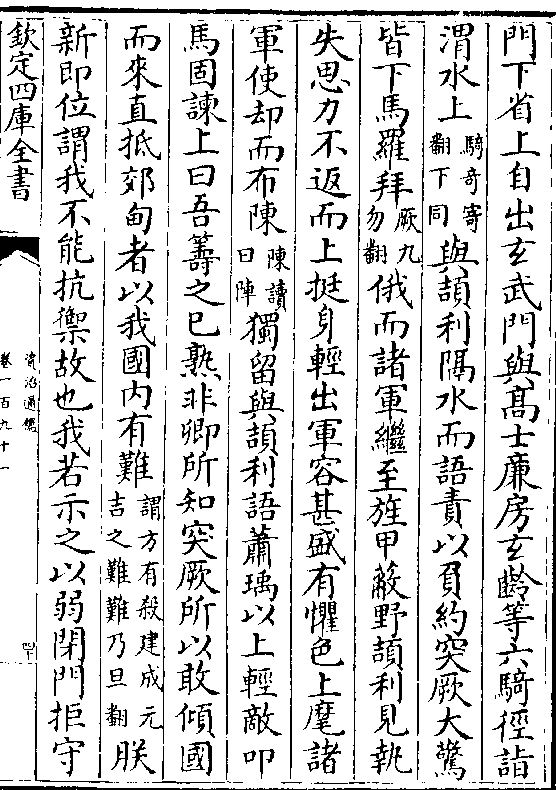 門下省上自出玄武門與髙士廉房玄齡等六騎徑詣
渭水上騎奇寄翻下同與頡利隔水而語責以負約突厥大驚
皆下馬羅拜厥九勿翻俄而諸軍繼至旌甲蔽野頡利見執
失思力不返而上挺身輕出軍容甚盛有懼色上麾諸
軍使却而布陳陳讀曰陣獨留與頡利語蕭瑀以上輕敵叩
馬固諫上曰吾籌之已熟非卿所知突厥所以敢傾國
而來直抵郊甸者以我國内有難謂方有殺建成元吉之難難乃旦翻朕
新即位謂我不能抗禦故也我若示之以弱閉門拒守
欽定四庫全書
資治通鑑
卷一百九十一